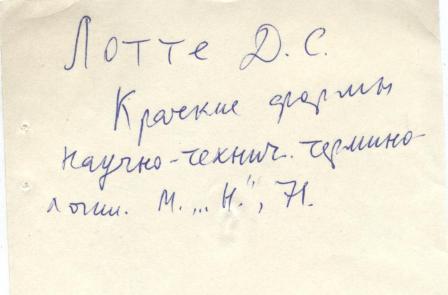 Лотте Д. С.
Краткие формы
научно-технич. термино-
логии. М. „Н.", 71.